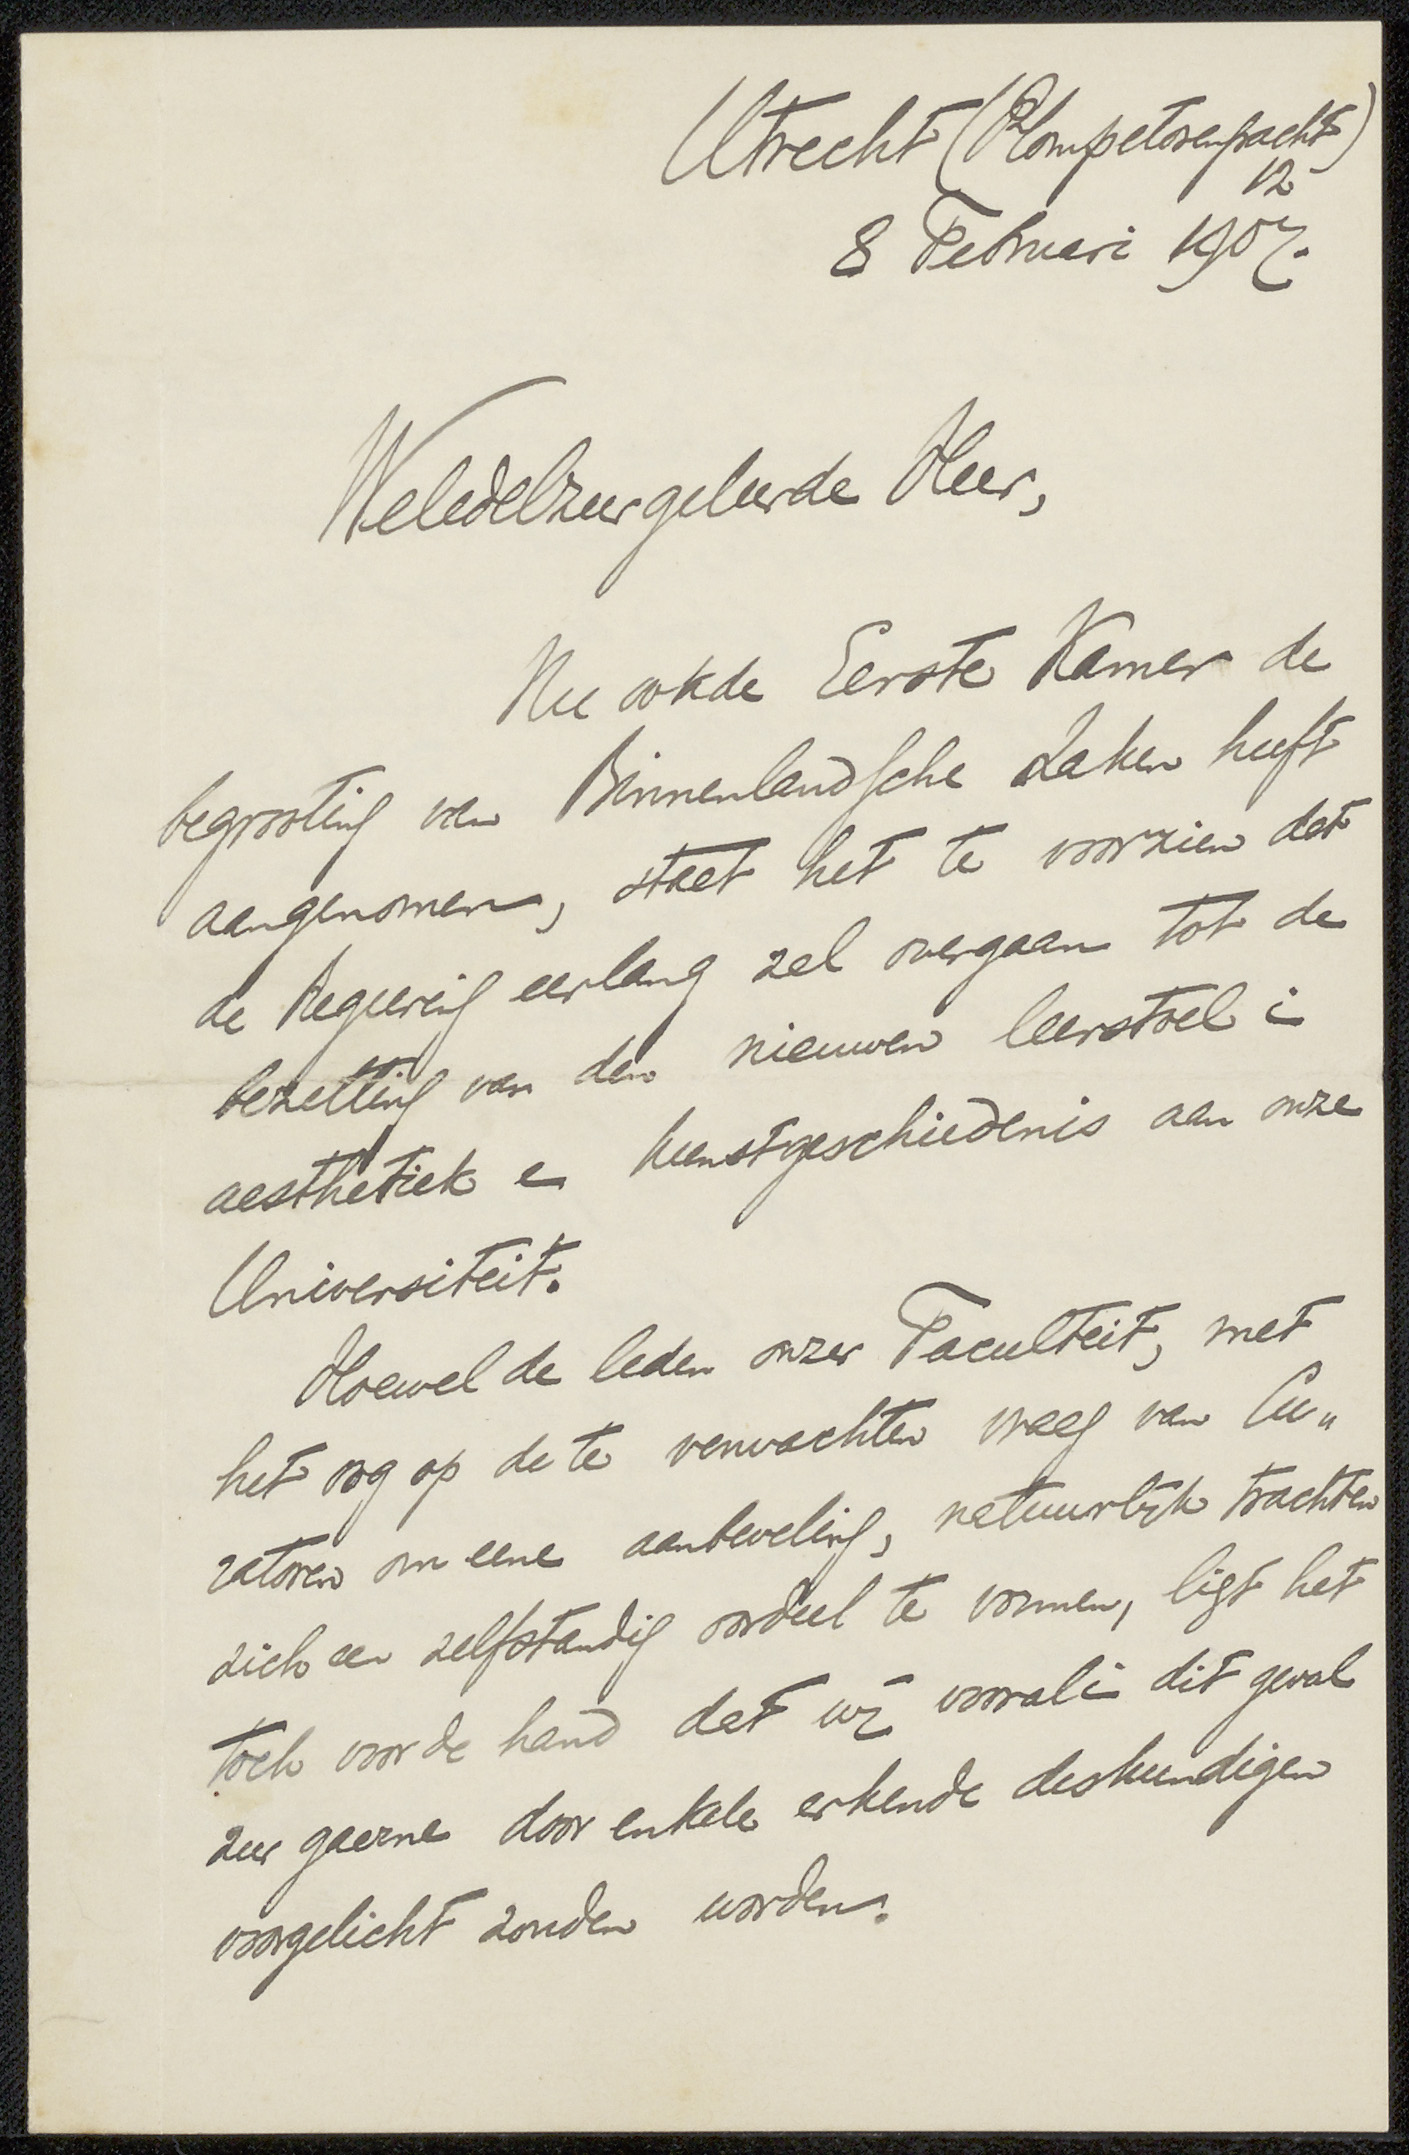 Utrecht (Plompetorengracht)
12
8 Februari 1907.
Weledelzeergeleerde Heer,
Nu ook de Eerste Kamer de
begrooting van Binnenlandsche Zaken heeft
aangenomen, staat het te voorzien dat
de Regeering eerlang zal overgaan tot de
bezetting van den nieuwen leerstoel in
aesthetiek en kunstgeschiedenis aan onze
Universiteit.
Hoewel de leden onzer Faculteit, met
het oog op de te verwachten vraag van Cu„
ratoren om eene aanbeveling, natuurlijk trachten
zich een zelfstandig oordeel te vormen, ligt het
toch voor de hand dat wij vooral in dit geval
zeer gaarne door enkele erkende deskundigen
voorgelicht zouden worden.